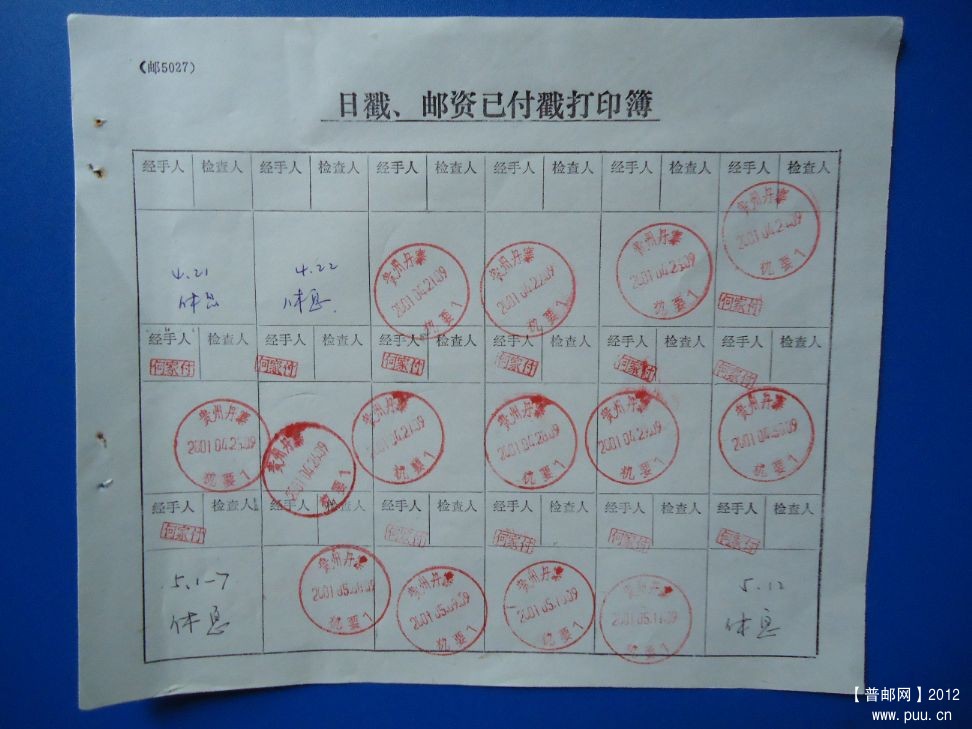 (邮5027)
日戳、邮资已付戳打印簿
经手人 检查人 经手人 检查人 经手人 检查人 经手人 检查人 经手人 检查人 经手人 检查人
4.21
休息
4.22
休息
贵州丹寨
机要1
贵州丹寨
机要1
贵州丹寨
机要1
贵州丹寨
机要1
何家付
经手人 检查人 经手人 检查人 经手人 检查人 经手人 检查人 经手人 检查人 经手人 检查人
何家付 何家付 何家付 何家付 何家付 何家付
贵州丹寨
机要1
贵州丹寨
机要1
贵州丹寨
机要1
贵州丹寨
机要1
贵州丹寨
机要1
贵州丹寨
机要1
经手人 检查人 经手人 检查人 经手人 检查人 经手人 检查人 经手人 检查人 经手人 检查人
何家付 何家付 何家付 何家付 何家付
5.1-7
休息
贵州丹寨
机要1
贵州丹寨
机要1
贵州丹寨
机要1
贵州丹寨
机要1
5.12
休息
【普邮网】2012
www.puu.cn